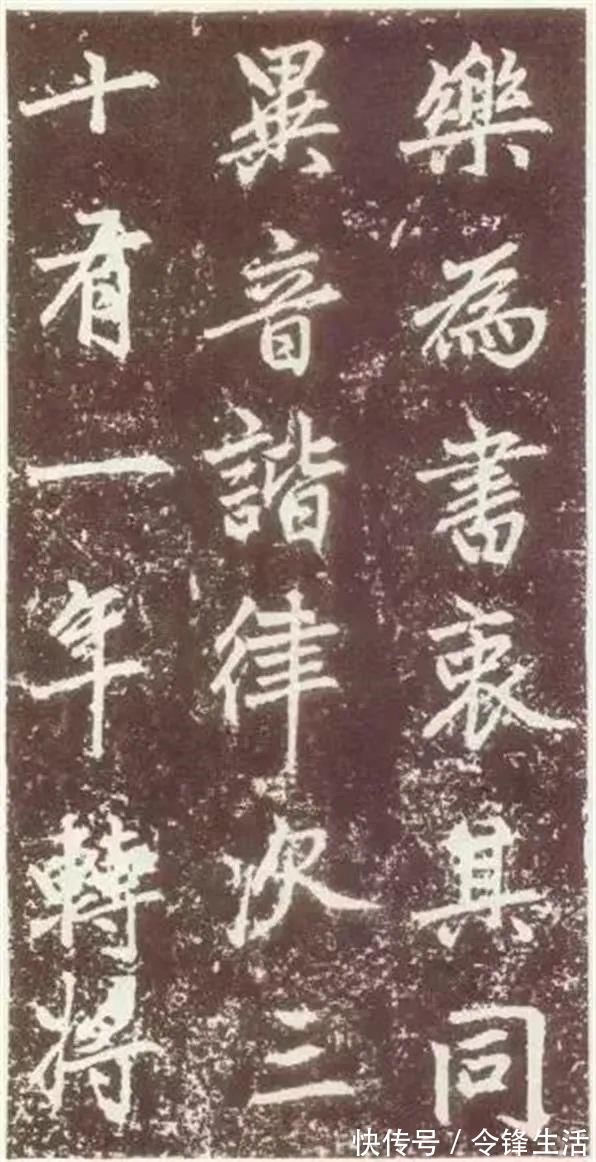 樂為書衷其同
異音諧律次三
十有一年轉將
快传号 / 令锋生活